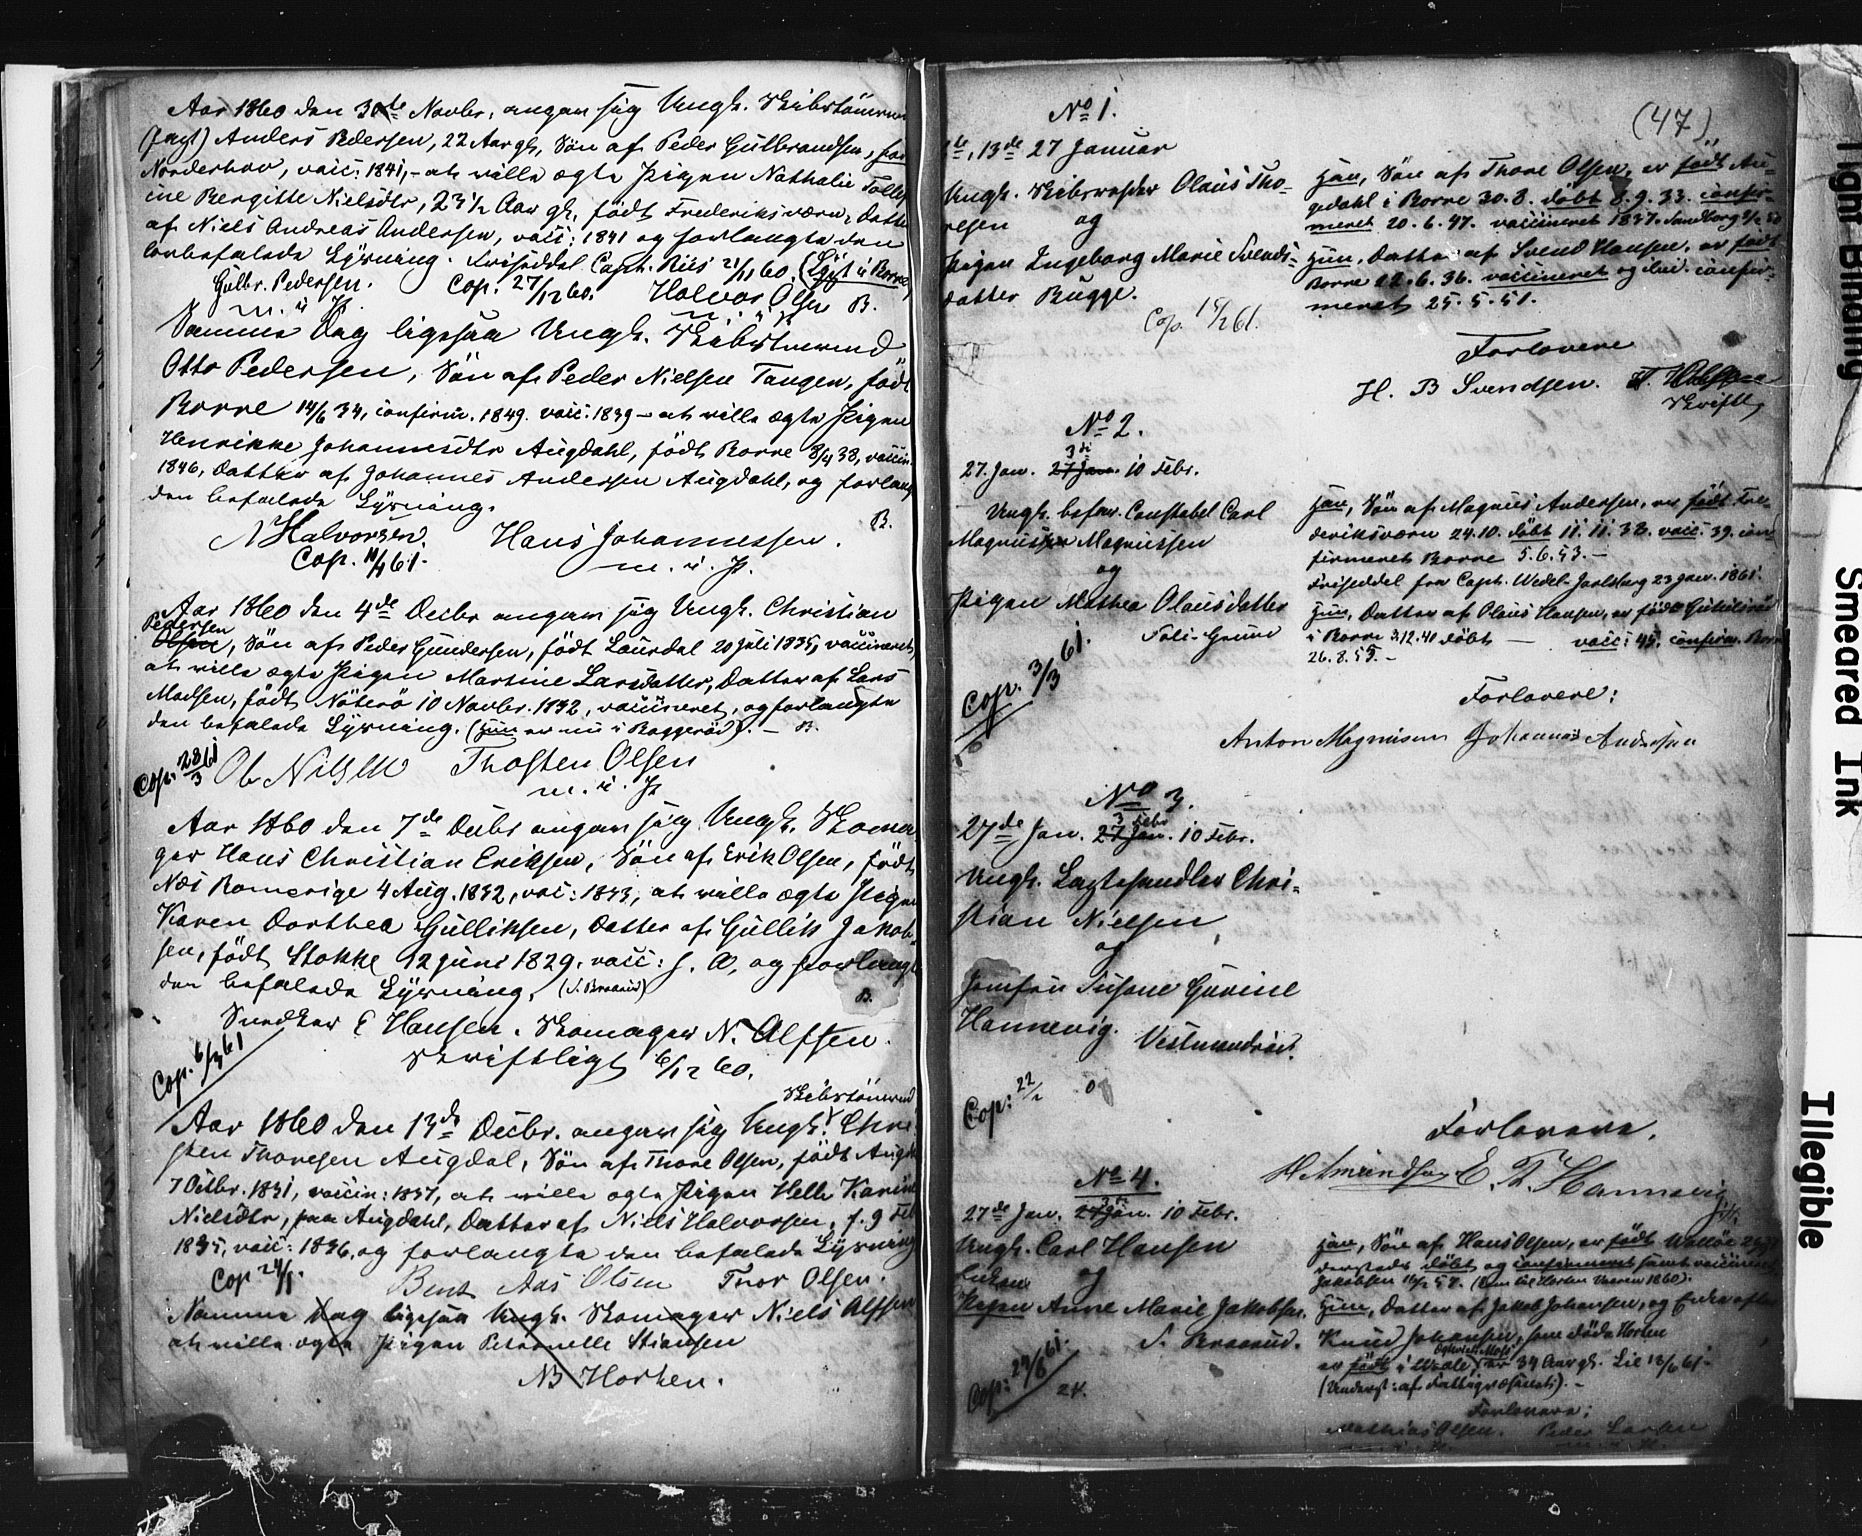 Aar 1860 den 30te Novbr. angav sig Ungk. Skibstömmermd
(Jagt) Anders Pedersen, 22 Aar gl., Søn af Peder Gulbrandsen, født
Norderhov, vacc: 1841, – at ville ægte Pigen Nathalie
ine Bergitte Nielsdtr, 23½ Aar gl, født Frederiksværn, Datter
af Niels Andreas Andersen, vacc: 1841 og forlangte den
lovbefalede Lysning. Friseddel Capt. Riis 21/11 60. (Lyst i Borre)
Gulbr. Pedersen. Cop. 27/12 60. Halvor Olsen B.
m. i. P.
Samme Dag ligesaa Ungk. Skibstmrmd
Otto Pedersen, Søn af Peder Nielsen Tangen, født
Borre 14/6 34, confirm. 1849. vacc: 1839 – at ville ægte Pigen
Henrikke Johannesdtr Augdahl, født Borre 8/4 38, vaccin.
1846, Datter af Johannes Andersen Augdahl, og forlang
den befalede Lysning.
B.
N Halvorsen. Hans Johannessen.
Cop. 10/1 61. m. i. P.
Aar 1860 den 4de Decbr angav sig Ungk. Christian
Pedersen
Olsen, Søn af Peder Gundersen, født Laurdal 20 Juli 1835, vaccineret,
at ville ægte Pigen Martine Larsdatter, Datter af Lars
Madsen, født Nöterö 10 Novbr. 1832, vaccineret, og forlangte
den befalede Lysning. (Hun er nu i Baggerød). – B.
Cop. 28/3 61 Ole Nilsen Thosten Olsen
m. i. P
Aar 1860 den 7de Decbr angav sig Ungk. Skoma
ger Hans Christian Eriksen, Søn af Erik Olsen, født
Næs Romerige 4 Aug. 1832, vac: 1833, at ville ægte Pigen
Karen Dorthea Gulliksen, Datter af Gullik Jakob-
sen, født Stokke 12 Juni 1829, vacc: s. A, og forlangte
den befalede Lysning. (S. Braarud) B.
Snedker E Hansen. Skomager N. Alfsen.
Skriftligt 6/12 60.
Cop. 6/3 61
Skibstömrmd
Aar 1860 den 13de Decbr. angav sig Ungk. Chri
sten Thoresen Augdal, Søn af Thore Olsen, født Augd
7 Octbr. 1831, vaccin: 1837, at ville ægte Pigen Helle Karine
Nielsdtr, paa Augdahl, Datter af Niels Halvorsen, f. 9 Feb
1835, vacc: 1836, og forlangte den befalede Lysning
Cop 24/1. Bent Aas Olsen Thor Olsen.
Samme Dag ligesaa Ungk. Skomager Niels Alfsen
at ville ægte Pigen Petronelle Stiansen
NB Horten.
(47)
No 1.
13de 27 Januar
Ungk. Skibsreder Olaus Tho-
resen
og
Pigen Ingeborg Marie Svends-
datter Bugge.
Cop. 14/2 61.
Han, Søn af Thore Olsen, er født Au-
gedahl i Borre 30. 8. döbt 8. 9. 33. confir-
meret 20. 6. 47. vaccineret 1837.
Hun, Datter af Svend Hansen, er født
Borre 22. 6. 36. vaccineret og ibid. confir-
meret 25. 5. 51.
Forlovere
H. B Svendsen.
Skriftl
No 2.
3di
27. Jan. 27 Jan. 10 Febr.
Ungk. befar. Constabel Carl
Magnus Magnussen
og
Pigen Mathea Olausdatter
Cop. 3/3 61.
Han, Søn af Magnus Andersen, er født Fre-
deriksværn 24. 10. döbt 11. 11. 38. vacc. 39. con
firmeret Borre 5. 6. 53. –
Friseddel fra Capt. Wedel-Jarlsberg 23 Janr. 1861.
Hun, Datter af Olaus Hansen, er født
i Borre 3. 12. 40 döbt – vacc: 45. confirm. Borre
26. 8. 55. –
Forlovere:
Anton Magnusen Johannes Andersen
No 3.
3 Febr
27de Jan. 27 Jan. 10 Febr.
Ungk. Lagtehandler Chri-
stian Nielsen
og
Jomfru Susane Gurine
Hannevig. Vestmandröd.
Cop: 22/2
Forlovere.
H Amundsen E. T. Hannevig
No 4.
3di
27de Jan. 27 Jan. 10 Febr.
Ungk. Carl Hansen
og
Pigen Anne Marie Jakobsen.
S. Braarud.
Cop: 24/6 61.
24.
Han, Søn af Hans Olsen, er født
dersteds döbt og confirmeret samt vaccineret
Hun, Datter af Jakob Johansen, og Enke efter
Knud Johansen, som döde Horten
er født i 34 Aar gl. Lie 13/6 61 –
(Underst: af Fattigvæsenet). –
Forlovere:
Mathias Olsen. Peder Larsen
Tight Binding
Smeared Ink
Illegible